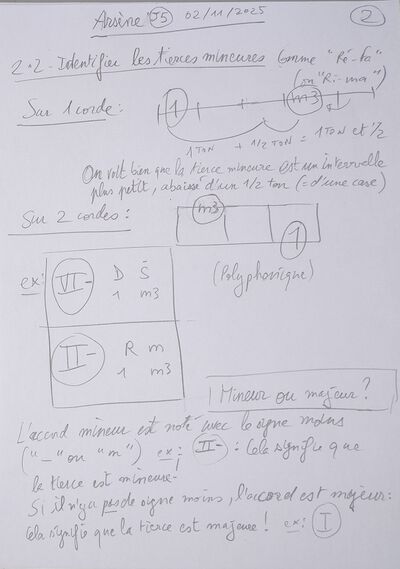 Arsène J5 02/11/2025 2
2.2 - Identifier les tierces mineures comme "Ré-Fa"
(ou "Ri-ma")
Sur 1 corde : 1 m3
1 TON + 1/2 TON = 1 TON et 1/2
On voit bien que la tierce mineure est un intervalle
plus petit, abaissé d'un 1/2 ton (= d'une case)
Sur 2 cordes : m3
1
(Polyphonique)
ex: VI- D S
1 m3
II- R m
1 m3
Mineur ou majeur ?
L'accord mineur est noté avec le signe moins
("-" ou "m") ex: II- : Cela signifie que
la tierce est mineure.
Si il n'y a pas de signe moins, l'accord est majeur :
Cela signifie que la tierce est majeure ! ex: I